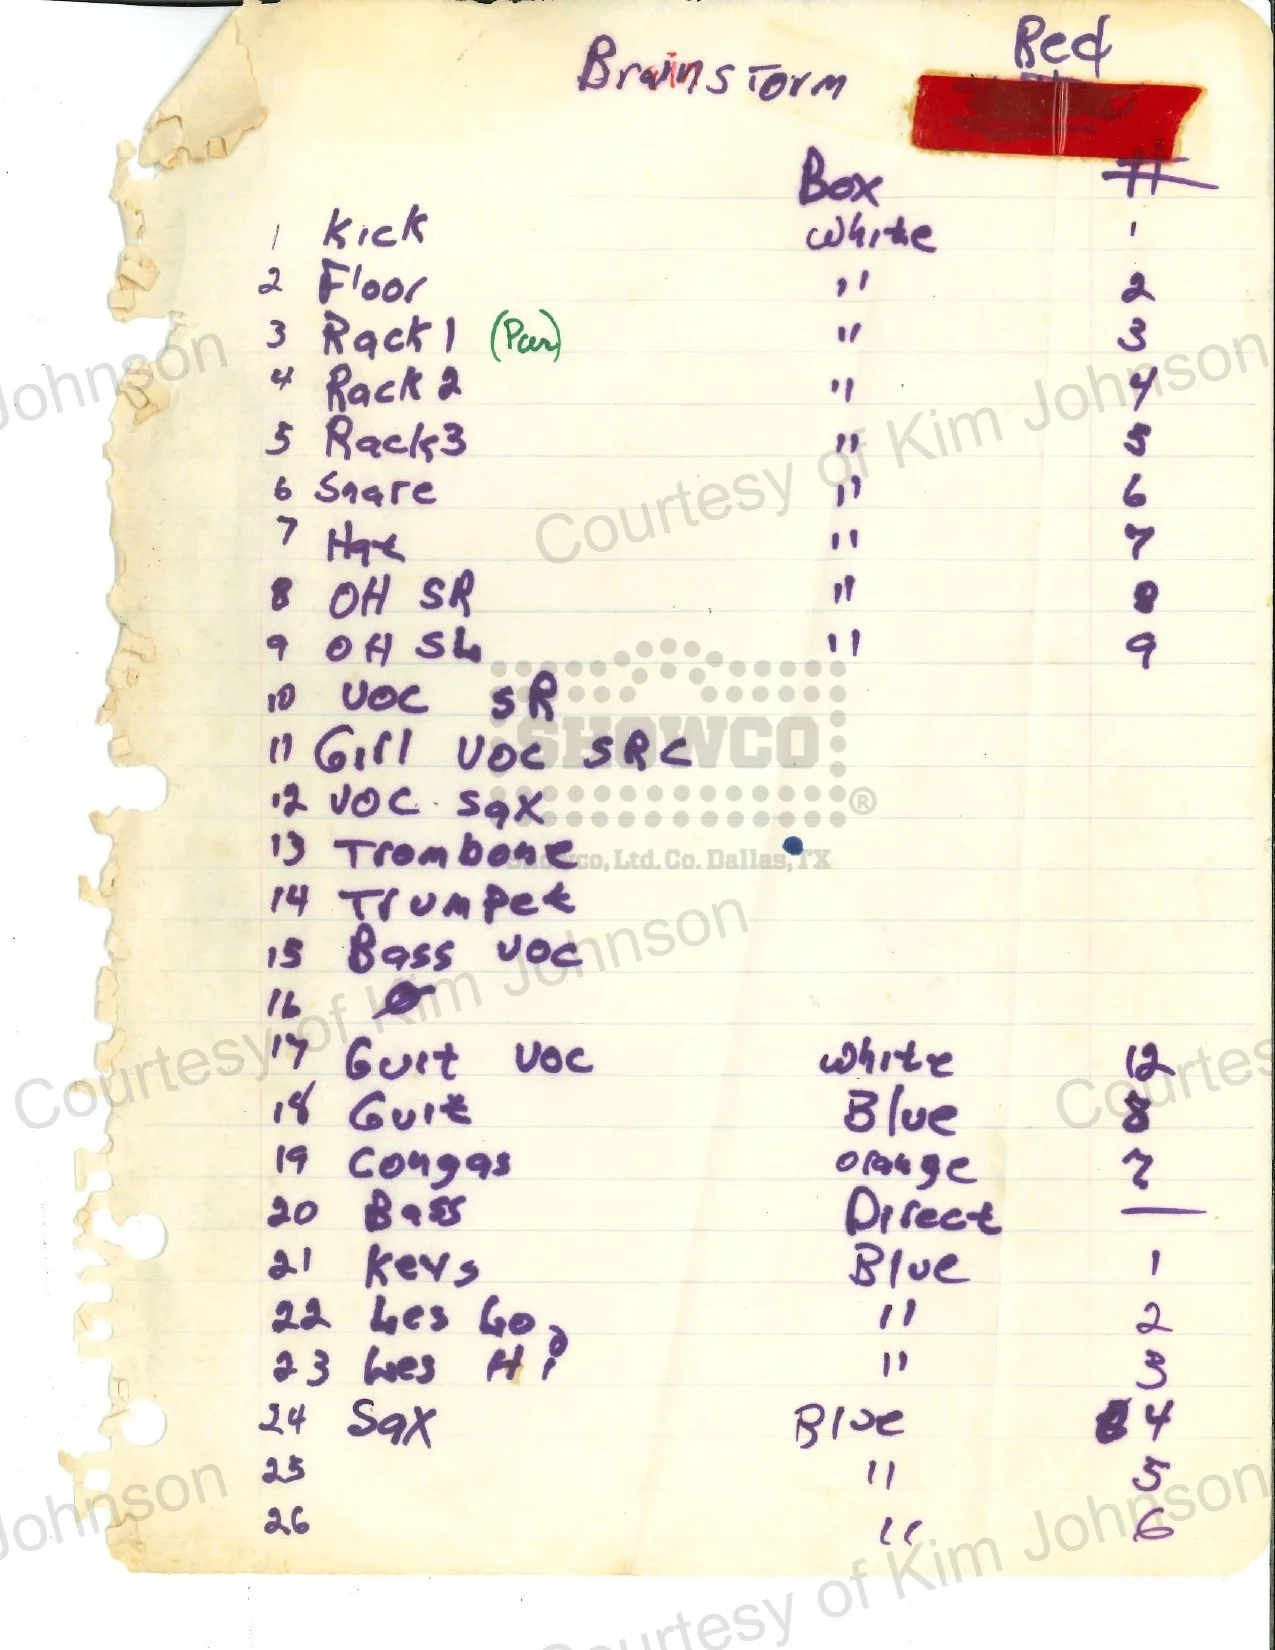 Red
Brainstorm
Box #
1 Kick White 1
2 Floor " 2
3 Rack 1 (Pan) " 3
4 Rack 2 " 4
5 Rack 3 " 5
6 Snare " 6
7 Hat " 7
8 OH SR " 8
9 OH SL " 9
10 VOC SR
11 Girl VOC SRC
12 VOC Sax
13 Trombone
14 Trumpet
15 Bass VOC
16
17 Guit VOC White 12
18 Guit Blue 8
19 Congas Orange 7
20 Bass Direct —
21 Keys Blue 1
22 Les Lo " 2
23 Les Hi " 3
24 Sax Blue 4
25 " 5
26 " 6
SHOWCO
®
Showco, Ltd. Co. Dallas, TX
Johnson
Courtesy of Kim Johnson
Courtesy of Kim Johnson
Courtes
Johnson
Courtesy of Kim Johnson